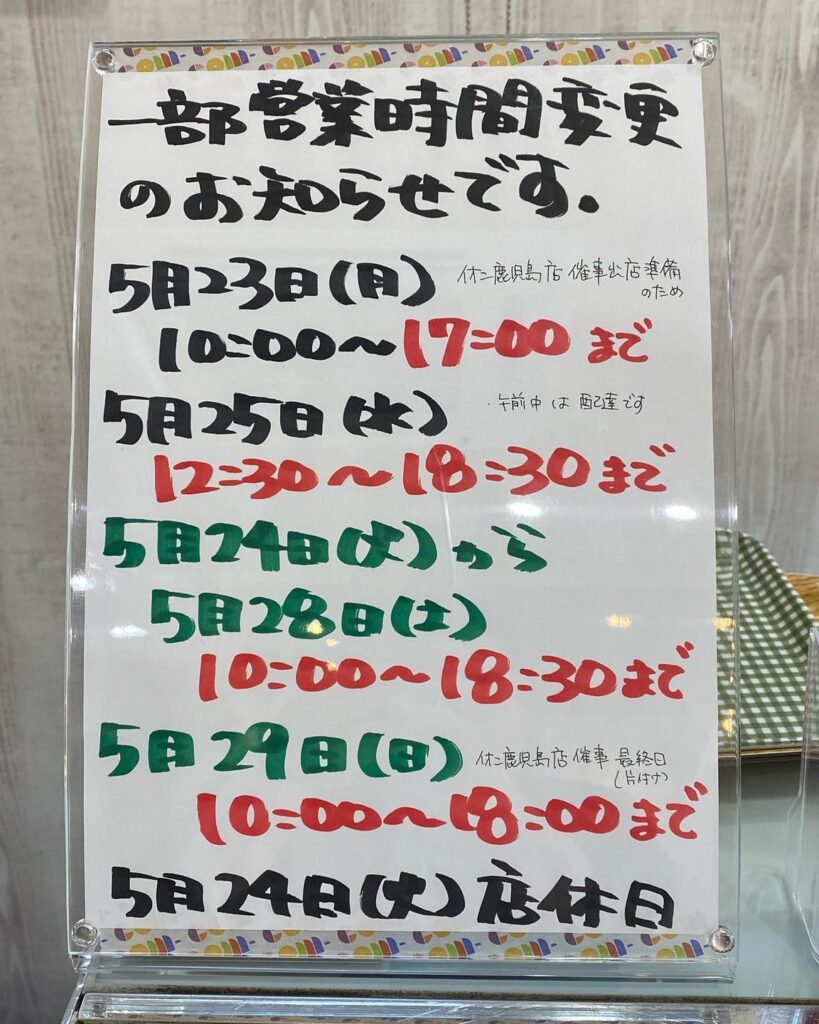 一部営業時間変更
のお知らせです.
5月23日(月)
イオン鹿児島店 催事出店準備
のため
10:00〜17:00 まで
5月25日(水)
・午前中は配達です
12:30〜18:30まで
5月24日(火)から
5月28日(土)
10:00〜18:30まで
5月29日(日)
イオン鹿児島店 催事 最終日
(片付け)
10:00〜18:00まで
5月24日(火)店休日